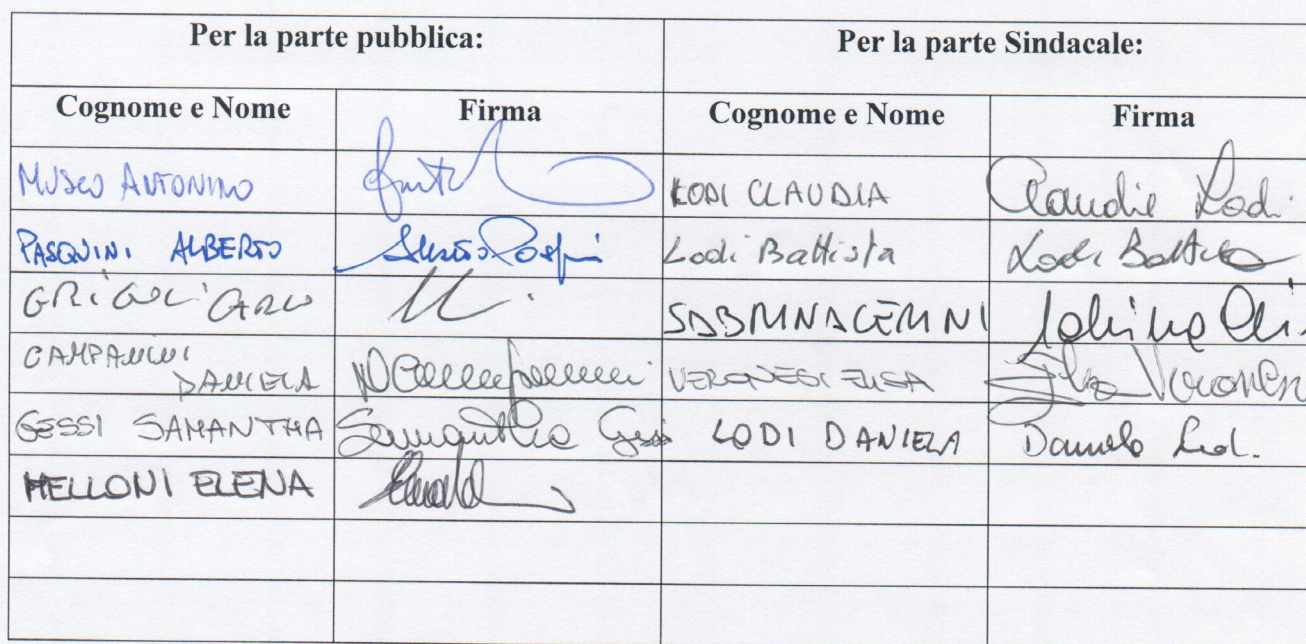 Per la parte pubblica: Per la parte Sindacale:
Cognome e Nome Firma Cognome e Nome Firma
MUSCO ANTONINO LODI CLAUDIA Claudia Lodi
PASQUINI ALBERTO Lodi Battista Lodi Battista
GRIGOLI CARLO SABRINA CERINI
CAMPANINI
DANIELA D Campanini VERONESI ELISA Elisa Veronesi
GESSI SAMANTHA Samantha Gessi LODI DANIELA Daniela Lodi
MELLONI ELENA